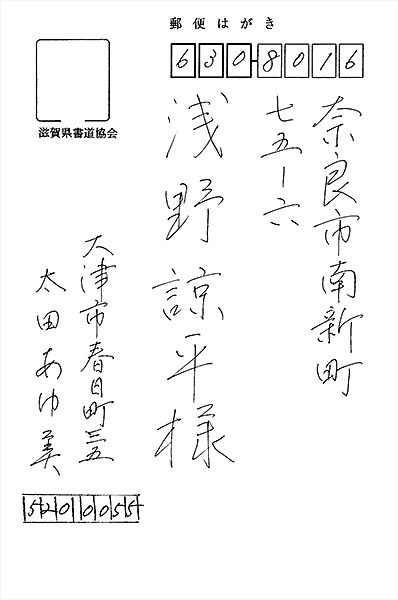 郵便はがき
630-8016
奈良市南新町
七五ー六
浅野諒平様
大津市春日町三五
太田あゆ美
5200055
滋賀県書道協会